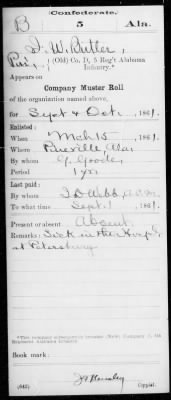 Confederate.
B 5 Ala.
J. W. Butler,
Pvt., (Old) Co. D, 5 Reg't Alabama
Infantry.*
Appears on
Company Muster Roll
of the organization named above,
for Sept & Oct, 1861.
Enlisted:
When Mch 15, 1861.
Where Pineville, Ala.
By whom G. Goode,
Period 1 yr.
Last paid:
By whom T B Webb, A.Q.M.
To what time Sept. 1, 1861.
Present or absent Absent
Remarks: Sick in the Hosp'l
at Petersburg
Book mark:
(642) Copyist.